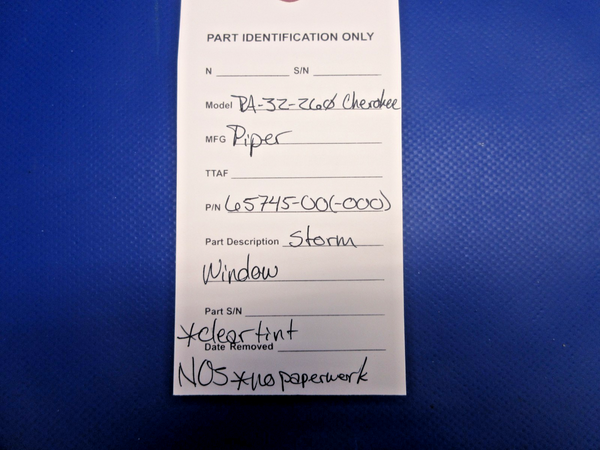 PART IDENTIFICATION ONLY
N S/N
Model PA-32-260 Cherokee
MFG Piper
TTAF
P/N 65745-00(-000)
Part Description Storm
Window
Part S/N
*clear tint
Date Removed
NOS *no paperwork